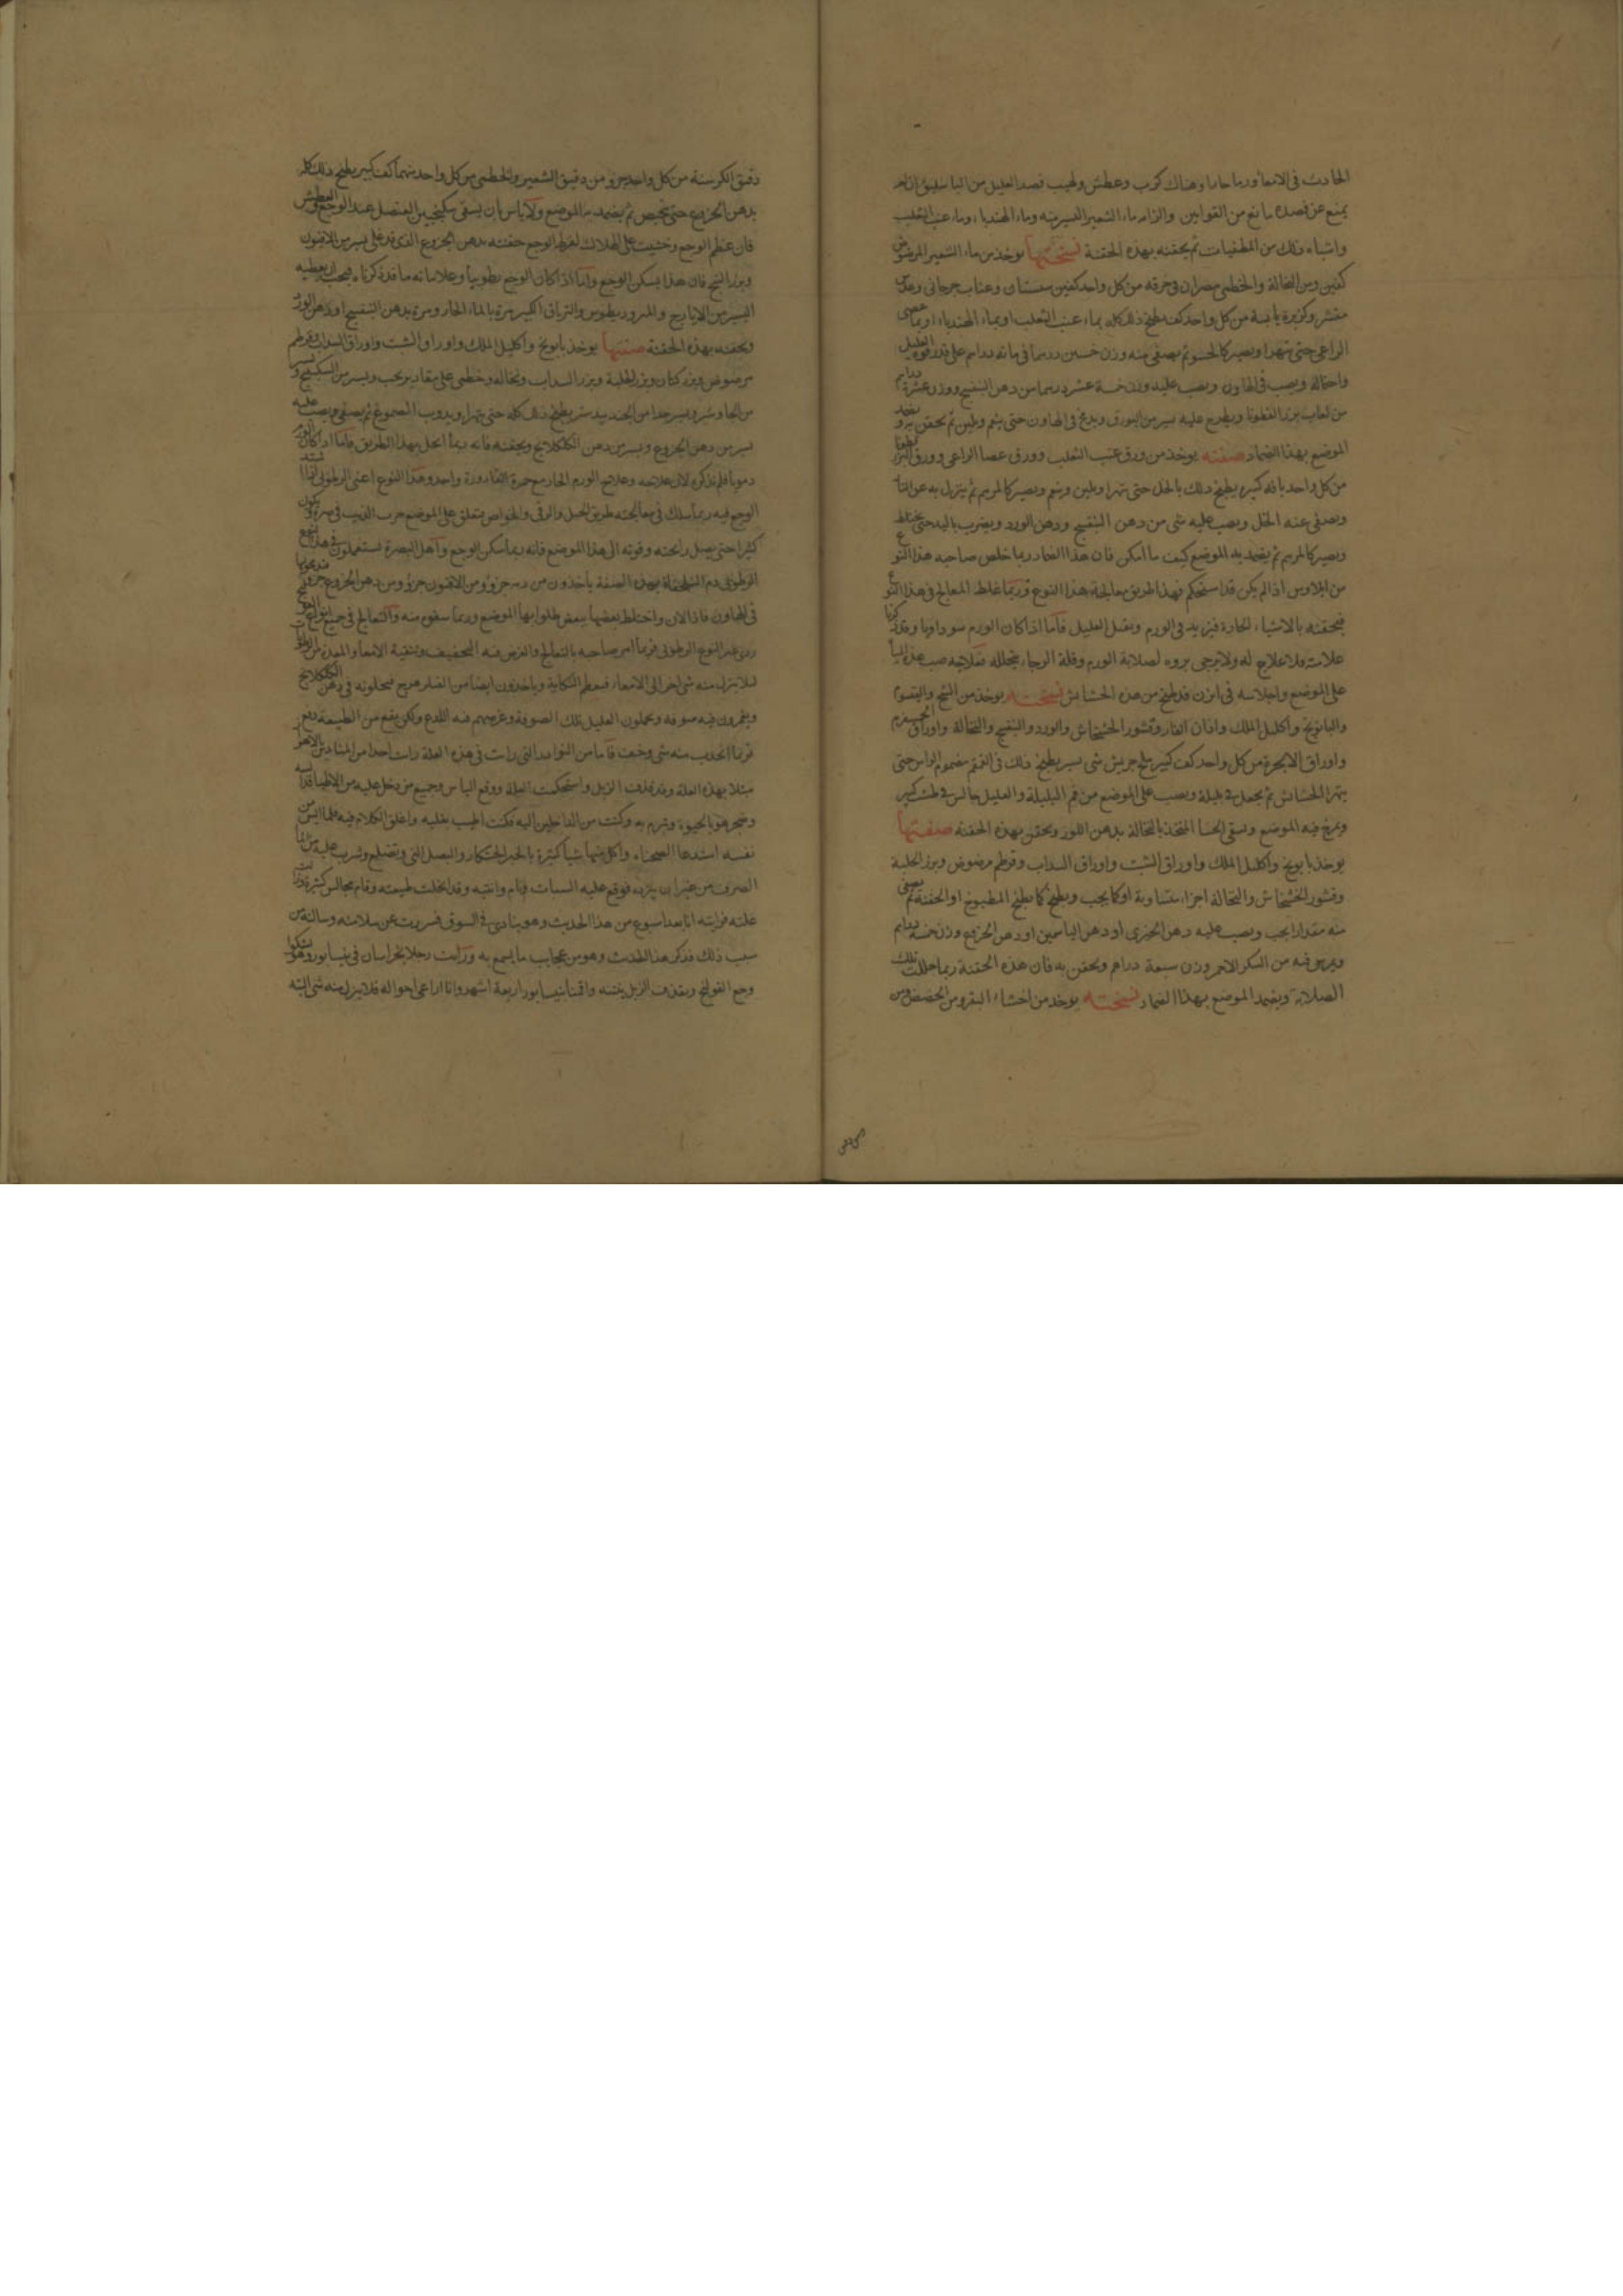 الحادث فى الامعا ورما حارا وهناك كرب وعطش ولهيب فصد العليل من الباسليق ان لم
يمنع عن فصده مانع من القوانين والزامه ماء الشعير وماء الهندباء وماء عنب الثعلب
واشباه ذلك من المطفيات ثم يحقنه بهذه الحقنة نسختها يوخذ من ماء الشعير المرضوض
كفين ومن النخالة والخطمى فى خرقه من كل واحد كفين سبستان وعناب جرجانى وعدس
مقشر وكزبرة يابسة من كل واحد كف يطبخ ذلك كله بماء عنب الثعلب او بماء الهندباء او بماء عصى
الراعى حتى تهرا ويصير كالحسو ثم يصفى منه وزن خمسين درهما فى مائة دراهم على قدر قوة العليل
واحتماله ويصب فى الهاون ويصب عليه وزن خمسة عشر درهما من دهن البنفسج ووزن عشرة دراهم
من لعاب بزر القطونا ويطرح عليه يسير من البورق فى الهاون حتى ويلين ثم يحقن به ويضمد
الموضع بهذا الضماد صفته يوخذ من ورق عنب الثعلب وورق عصا الراعى وورق البزر قطونا
من كل واحد باقة كبيرة يطبخ ذلك بالخل حتى تهرا ويلين وينعم ويصير كالمرهم ثم ينزل به عن النار
ويصفى عنه الخل ويصب عليه شى من دهن البنفسج ودهن الورد ويضرب باليد حتى يختلط
ويصير كالمرهم ثم يضمد به الموضع كيف ما امكن فان هذا الضماد ربما خلص صاحبه هذا النوع
من ايلاوس اذا لم يكن قد استحكم فهذا طريق معالجة هذا النوع وربما غلط المعالج فى هذا النوع
فيحقنه بالاشياء الحارة فيزيد فى الورم ويقتل العليل فاما اذا كان الورم سوداويا وقد ذكرنا
علامته فلا علاج له ولا يرجى بروه لصلابة الورم وقلة الرجاء بتحلله فعلاجه صب هذه المياه
على الموضع واجلاسه فى ابزن قد طبخ من هذه الحشائش نسخته يوخذ من الشيح والقيسوم
والبابونج واكليل الملك واذان الفار وقشور الخشخاش والورد والبنفسج والنخالة واوراق
واوراق الابجرة من كل واحد كف كبير ملح جريش شى يسير يطبخ ذلك فى القمقم مضموم الراس حتى
يتهرا الحشائش ثم يجعل فى بلبلة ويصب على الموضع من فم البلبلة والعليل جالس فى طشت كبير
ويمرخ فيه الموضع ويسقى الحسا المتخذ بالنخالة بدهن اللوز ويحقن بهذه الحقنه صفتها
يوخذ بابونج واكليل الملك واوراق الشبت واوراق السداب وقرطم مرضوض وبزر الحلبة
وقشور الخشخاش والنخالة اجزاء متساوية او كما يجب ويطبخ كما يطبخ المطبوخ او الحقنة ثم يصفى
منه مقدار ما يجب ويصب عليه دهن الخيرى او دهن الياسمين او دهن الخروع وزن خمسة دراهم
ويمرس فيه من السكر الاحمر وزن سبعة دراهم ويحقن به فان هذه الحقنة ربما حللت تلك
الصلابة ويضمد الموضع بهذا الضماد نسخته يوخذ من اخشاء البقر ومن الحضض ومن
دقيق الكرسنة من كل واحد جزو من دقيق الشعير والخطمى من كل واحد منهما كف كبير يطبخ ذلك كله
بدهن الخروع حتى يخبص ثم يضمد به الموضع ولا باس بان يسقى سكنجبين العنصل عند الوجع والعطش
فان عظم الوجع وخشيت على الهلاك لفرط الوجع حقنته بدهن الخروع الذى قد غلى بيسير من الافيون
وبزر البنج فان هذا يسكن الوجع واما اذا كان الوجع رطوبيا وعلاماته ما قد ذكرناه فيجب ان يعطيه
اليسير من الايارج والمثروديطوس والترياق الكبير مرة بالماء الحار ومرة بدهن البنفسج او دهن الورد
ويحقنه بهذه الحقنة صفتها يوخذ بابونج واكليل الملك واوراق الشبت واوراق السداب وقرطم
مرضوض وبزر كتان وبزر الحلبة وبزر السداب ونخاله وخطمى على مقادير يجب ويسير من السكبينج ويسير
من الجاوشير ويسير جدا من الجندبيدستر يطبخ ذلك كله حتى يتهرا ويذوب الصموغ ثم يصفى ويصب عليه
يسير من دهن الخروع ويسير من دهن الكلكلانج ويحقنه فانه ربما انحل بهذا الطريق فاما اذا كان الورم
دمويا فلم نذكره لان علاجه وعلاج الورم الحار مع حمرة القارورة واحد وهذا النوع اعنى الرطوبى اذا اشتد
الوجع فيه ربما سلك فى معالجته طريق الحيل والرقى والخواص يتعلق على الموضع خرء الذيب فى صرة يكون
كثيرا حتى يصل رائحته وقوته الى هذا الموضع فانه ربما سكن الوجع واهل البصرة يستعملون فى هذا النوع
الرطوبى دم السلحفاة بهذه الصفة ياخذون من دمه جزوو من الافيون جزوو من دهن الخروع جزو
فى الهاون فاذا لان واختلط بعضها ببعض طلوا بها الموضع وربما سقوا منه والتعالج فى جميع انواع
ردى غير النوع الرطوبى فربما امر صاحبه بالتعالج والغرض فيه التجفيف وتنقية الامعا والمعدة من
ليلا ينزل منه شى اخر الى الامعاء فيعظم النكاية وياخذون ايضا من فيحلونه فى دهن الكلكلانج
ويغمرون فيه صوفه ويحملون العليل تلك الصوفة وغرضهم فيه اللذع ولكن يقع من الطبيعة دفع
فربما انجذب منه شى وخف فاما من النوادر التى رات فى هذه العلة رات احدا من المنادين بالاهواز
مبتلا بهذه العلة وقد قذف الزبل واستحكمت العلة ووقع الياس وجميع من دخل عليه من الاطبا
وضجر هو بالحيوة وتبرم به وكنت من الداخلين اليه فكنت اطيب بقلبه واغلق الكلام فيه فلما ايس من
نفسه استدعا الصحناه واكل منها شيا كثيرة بالخبز الخشكار والبصل النى وتضلع وشرب عليه
الصرف من غير ان يمزجه فوقع عليه السبات ونام وانتبه وقد انحلت طبيعته وقام مجالس كثيرة
علته فرايته انا بعد اسبوع من هذا الحديث وهو ينادى فى السوق فسررت عن سلامته وسالته عن
سبب ذلك فذكر هذا الحديث وهو من عجايب ما يسمع به ورايت رجلا بخراسان فى نيسابور وهو يشكوا
وجع القولنج ويقذف الزبل بعينه واقمنا بنيسابور اربعة اشهر وانا اراعى احواله فلا ينزل منه شى البته